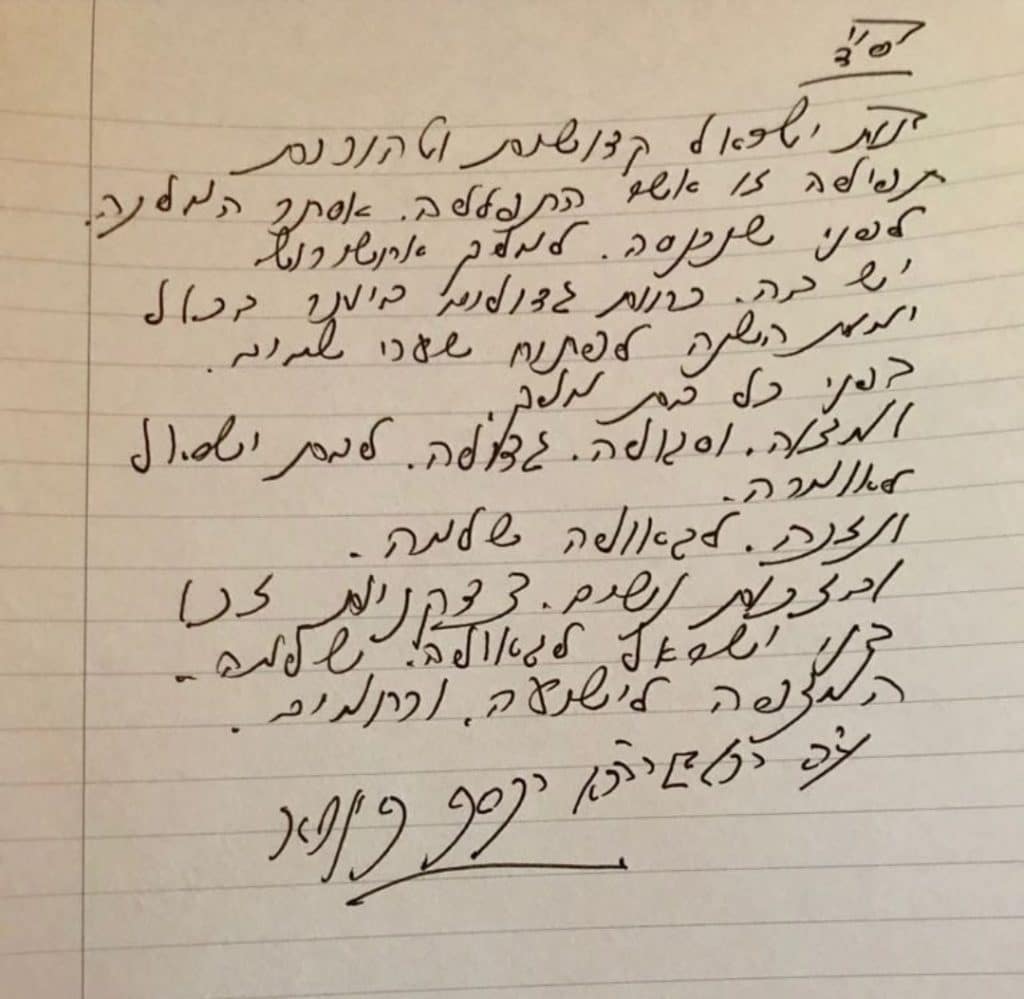 בס"ד
בנות ישראל קדושות וטהורות
תפילה זו אשר התפללה. אסתר המלכה.
לפני שנכנסה. למלך אחשורוש
יש בה. כוחות גדולים ביותר בכול
ימות השנה לפתוח שערי שמים.
בפני כל בת מלך.
ומצוה. וסגולה. גדולה. לבת ישראל
לאומרה.
ונזכה. לגאולה שלמה.
ובזכות נשים. צדקניות זכו
בני ישראל לגאולה. שלמה.
המצפה לישועה. ורחמים.
ע"ה יאשיהו יוסף פינטו